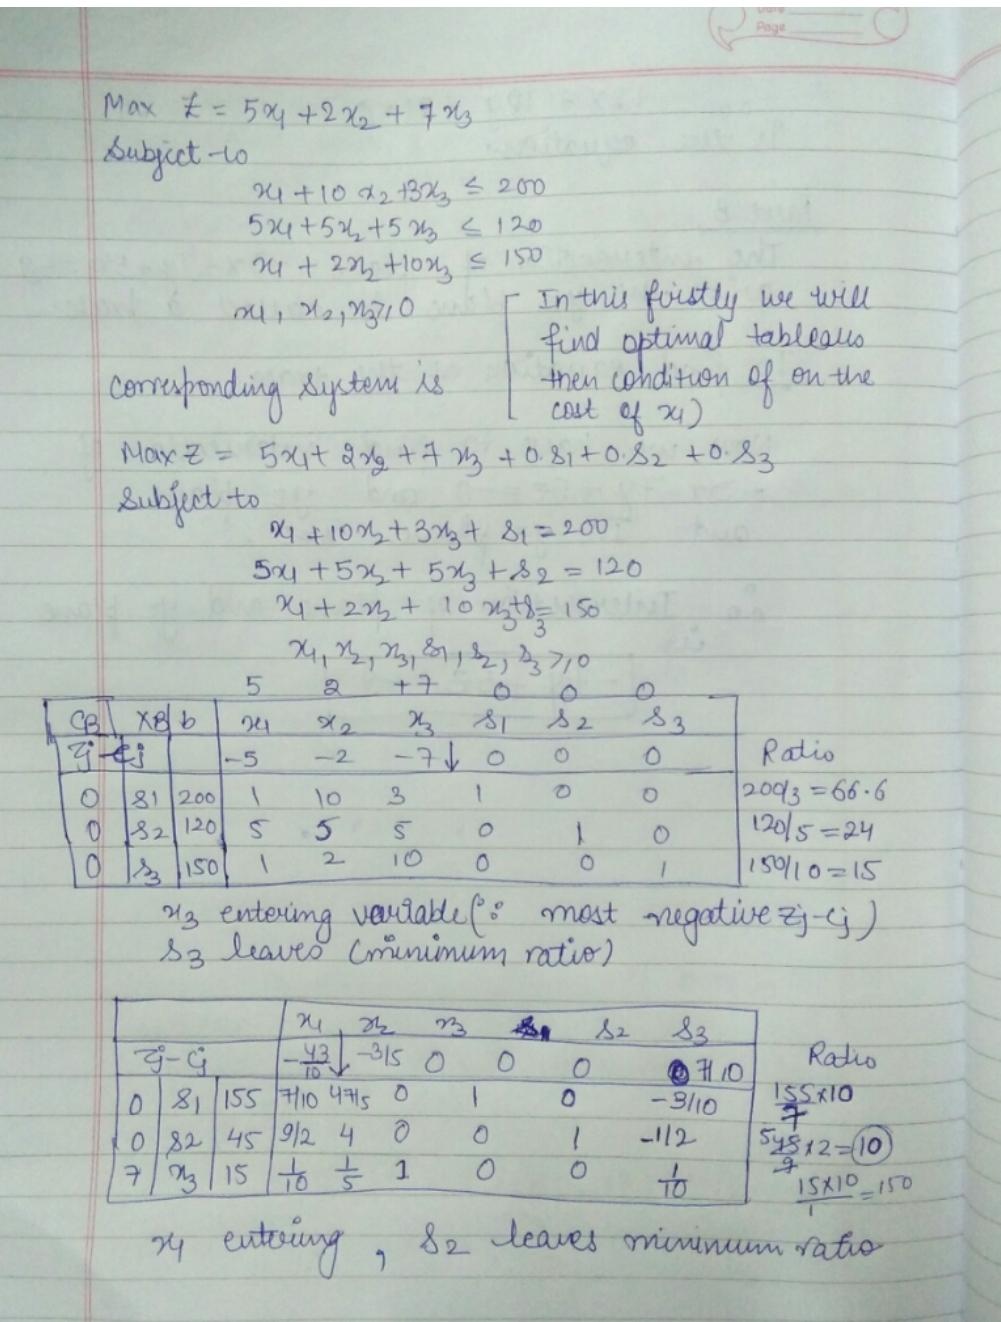 Date
Page
Max Z = 5x1 + 2x2 + 7x3
Subject to
x1 + 10 x2 + 3x3 ≤ 200
5x1 + 5x2 + 5x3 ≤ 120
x1 + 2x2 + 10x3 ≤ 150
x1, x2, x3 ≥ 0
[ In this firstly we will
find optimal tableaus
then condition of on the
cost of x1)
corresponding system is
Max Z = 5x1 + 2x2 + 7x3 + 0.s1 + 0.s2 + 0.s3
Subject to
x1 + 10x2 + 3x3 + s1 = 200
5x1 + 5x2 + 5x3 + s2 = 120
x1 + 2x2 + 10x3 + s3 = 150
x1, x2, x3, s1, s2, s3 ≥ 0
5 2 +7 0 0 0
CB XB b x1 x2 x3 s1 s2 s3
Zj-Cj -5 -2 -7↓ 0 0 0 Ratio
0 s1 200 1 10 3 1 0 0 200/3 = 66.6
0 s2 120 5 5 5 0 1 0 120/5 = 24
0 s3 150 1 2 10 0 0 1 150/10 = 15
x3 entering variable (∵ most negative Zj-Cj)
s3 leaves (minimum ratio)
x1 x2 x3 s1 s2 s3
Zj-Cj -43/10↓ -3/5 0 0 0 7/10 Ratio
0 s1 155 7/10 47/5 0 1 0 -3/10 155×10/7
0 s2 45 9/2 4 0 0 1 -1/2 45/9 × 2 = 10
7 x3 15 1/10 1/5 1 0 0 1/10 15×10/1 = 150
x1 entering, s2 leaves mininum ratio